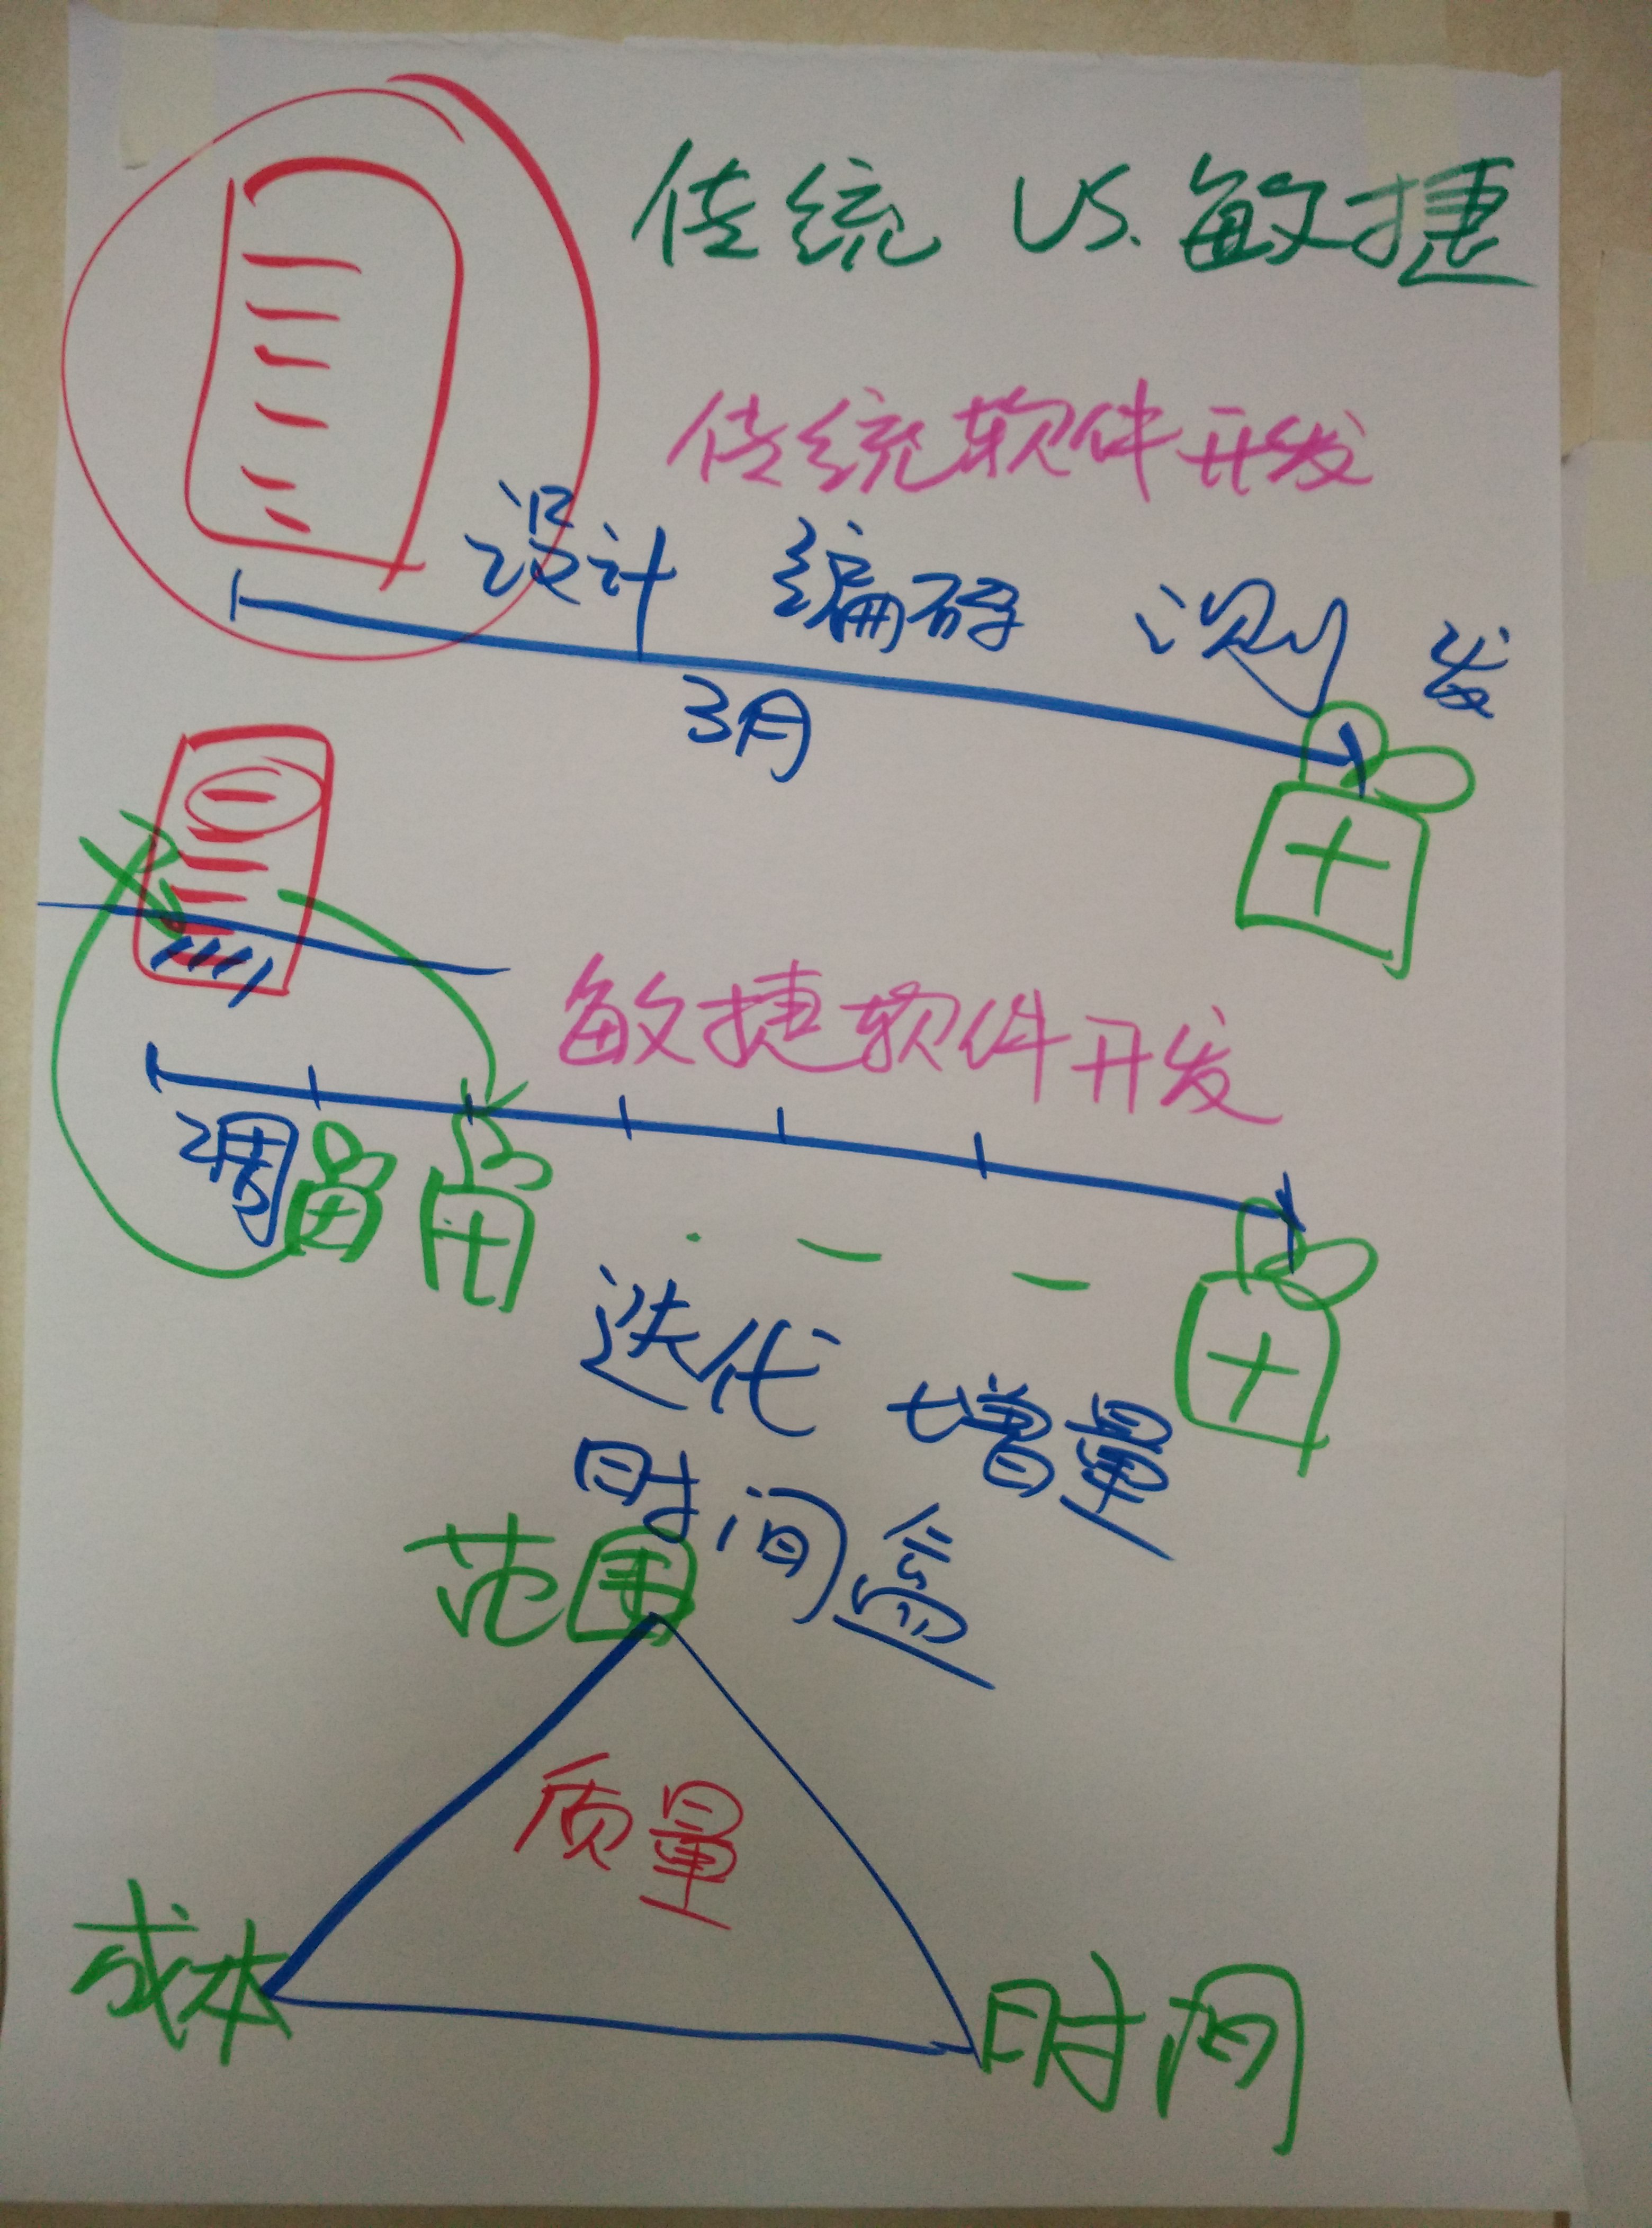 传统 VS. 敏捷
传统软件开发
设计 编码 测 发
3月
敏捷软件开发
迭代 增量
时间盒
范围
质量
成本
时间